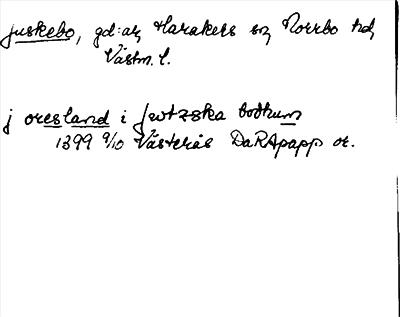 Juskebo, gd:ar, Harakers sn, Norrbo hd,
Västm. l.
j oresland i Jwtzska bodhum
1399 9/10 Västerås DaRApapp or.